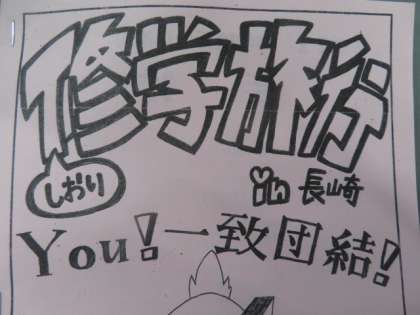 修学旅行
しおり
in 長崎
You!一致団結!